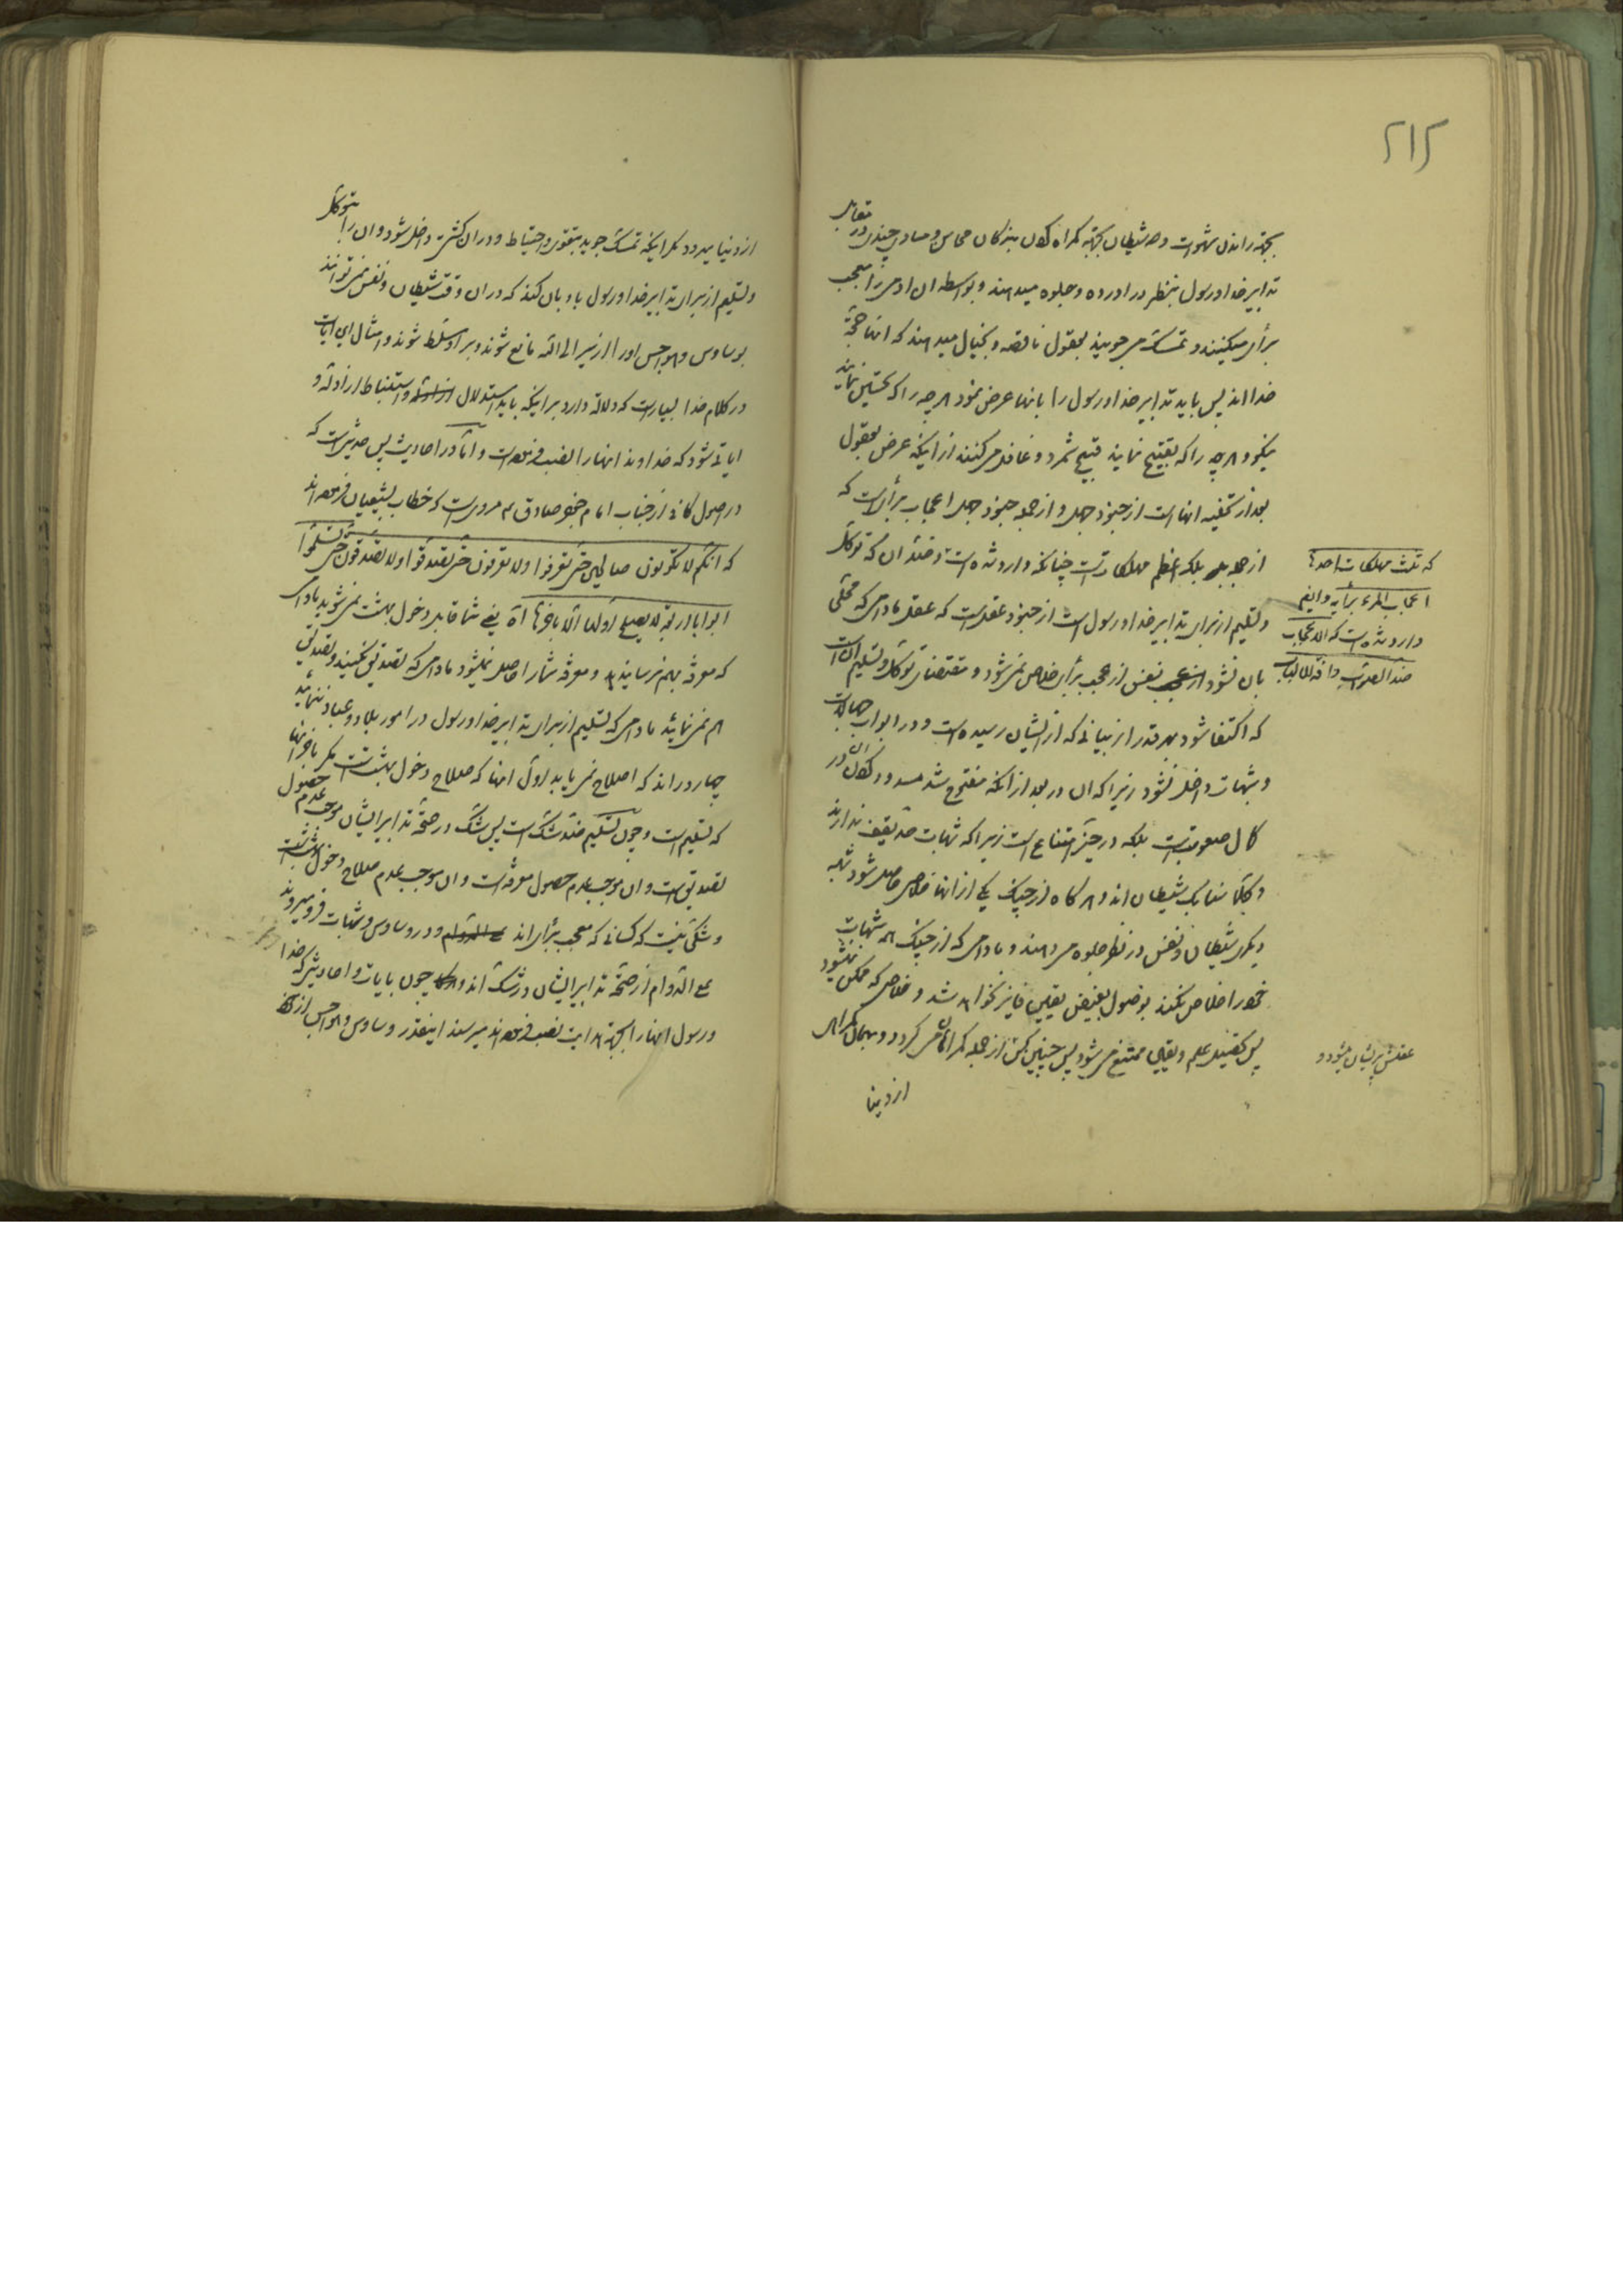 ۲۱۲
بجهة راندن شهوت و شیطان بجهة گمراه کردن بندگان محاسن و مساوی چندی در مقابل
تدابیر خدا و رسول بنظر در آورده و جلوه میدهند و بواسطه ان ادمی را معجب
برأی میکنند و تمسک می جویند بعقول ناقصه و بخیال میدهند که انها حجة
خدا اند پس باید تدابیر خدا و رسول را بانها عرض نمود هر چه را که تحسین نمایند
نیکو و هر چه را که تقبیح نمایند قبیح شمرد و غافل می کنند از اینکه عرض بعقول
بعد از تخلیه انها است از جنود جهل و از جمله جنود جهل اعجاب برأی است که
از جمله بلکه اعظم مهلکات است چنانکه وارد شده است و ضد ان که توکل
که ثلث مهلکات احدها
اعجاب المرء برأیه و ایضا
وارد شده است که الاعجاب
ضد الصواب و افة الالباب
و تسلیم از برای تدابیر خدا و رسول است از جنود عقل است که عقل مادامی که محلی
بان نشود نفس از عجب برأی خلاص نمی شود و مقتضای توکل و تسلیم ان است
که اکتفا شود بهر قدر از بیانی که از ایشان رسیده است و در ابواب جهالات
و شبهات داخل نشود زیرا که ان در بعد از آنکه مفتوح شد مسدود کردن ان در
کمال صعوبت است بلکه در حیّز امتناع است زیرا که شبهات حد یقف ندارند
و کلاً شیطان اند و هر گاه از چنگ یکی از انها خلاص حاصل شود شبه
دیگری شیطان و نفس در نظر جلوه می دهند و مادامی که از چنگ همه شبهات
خود را خلاص نکند بوصول بفیض یقین فایز نخواهد شد و خلاصی که ممکن نمیشود
پس تحصیل علم و یقین ممتنع می شود پس چنین کس از جمله گمراهان می گردد و بهمان گمراهی
عقلش پریشان میشود و
از دنیا
از دنیا میرود مگر اینکه تمسک جوید بتقوی و احتیاط و در ان کشتی داخل شود و ان را بتوکل
و تسلیم از برای تدابیر خدا و رسول بادبان کند که در ان وقت شیطان و نفس نمی توانند
بوساوس و هواجس او را از سیر الی الله مانع شوند و بر او مسلط شوند و امثال این ایات
در کلام خدا بسیار است که دلالة دارد بر اینکه باید استدلال و استنباط از ادله و
ایاتی شود که خداوند انها را نصب فرموده است و اما در احادیث پس حدیثی است که
در اصول کافی از جناب امام جعفر صادق ع مروی است که خطاب بشیعیان فرموده اند
که انکم لا تکونون صالحین حتی تعرفوا و لا تعرفون حتی تصدقوا و لا تصدقون حتی تسلموا
ابوابا اربعة لا یصلح اولها الا باخرها اه یعنی شما قابل دخول بهشت نمی شوید مادامی
که معرفة بهم نرسانید و معرفة شما را حاصل نمیشود مادامی که تصدیق نکنید و تصدیق
هم نمی نمائید مادامی که تسلیم از برای تدابیر خدا و رسول در امور بلاد و عباد ننمائید
چهار در اند که اصلاح نمی یابد اول انها که صلاح دخول بهشت است مگر باخر انها
که تسلیم است و چون تسلیم ضد شک است پس شک در صحة تدابیر ایشان موجب عدم حصول
تصدیق است و ان موجب عدم حصول معرفة است و ان موجب عدم صلاح دخول بهشت است
و شکی نیست که کسانی که معجب برأی اند و در وساوس و شبهات فرو میروند
علی الدوام از صحة تدابیر ایشان در شک اند و چون بایات و احادیثی که خدا
و رسول انها را بجهة هدایت نصب فرموده اند میرسند اینقدر وساوس و هواجس از